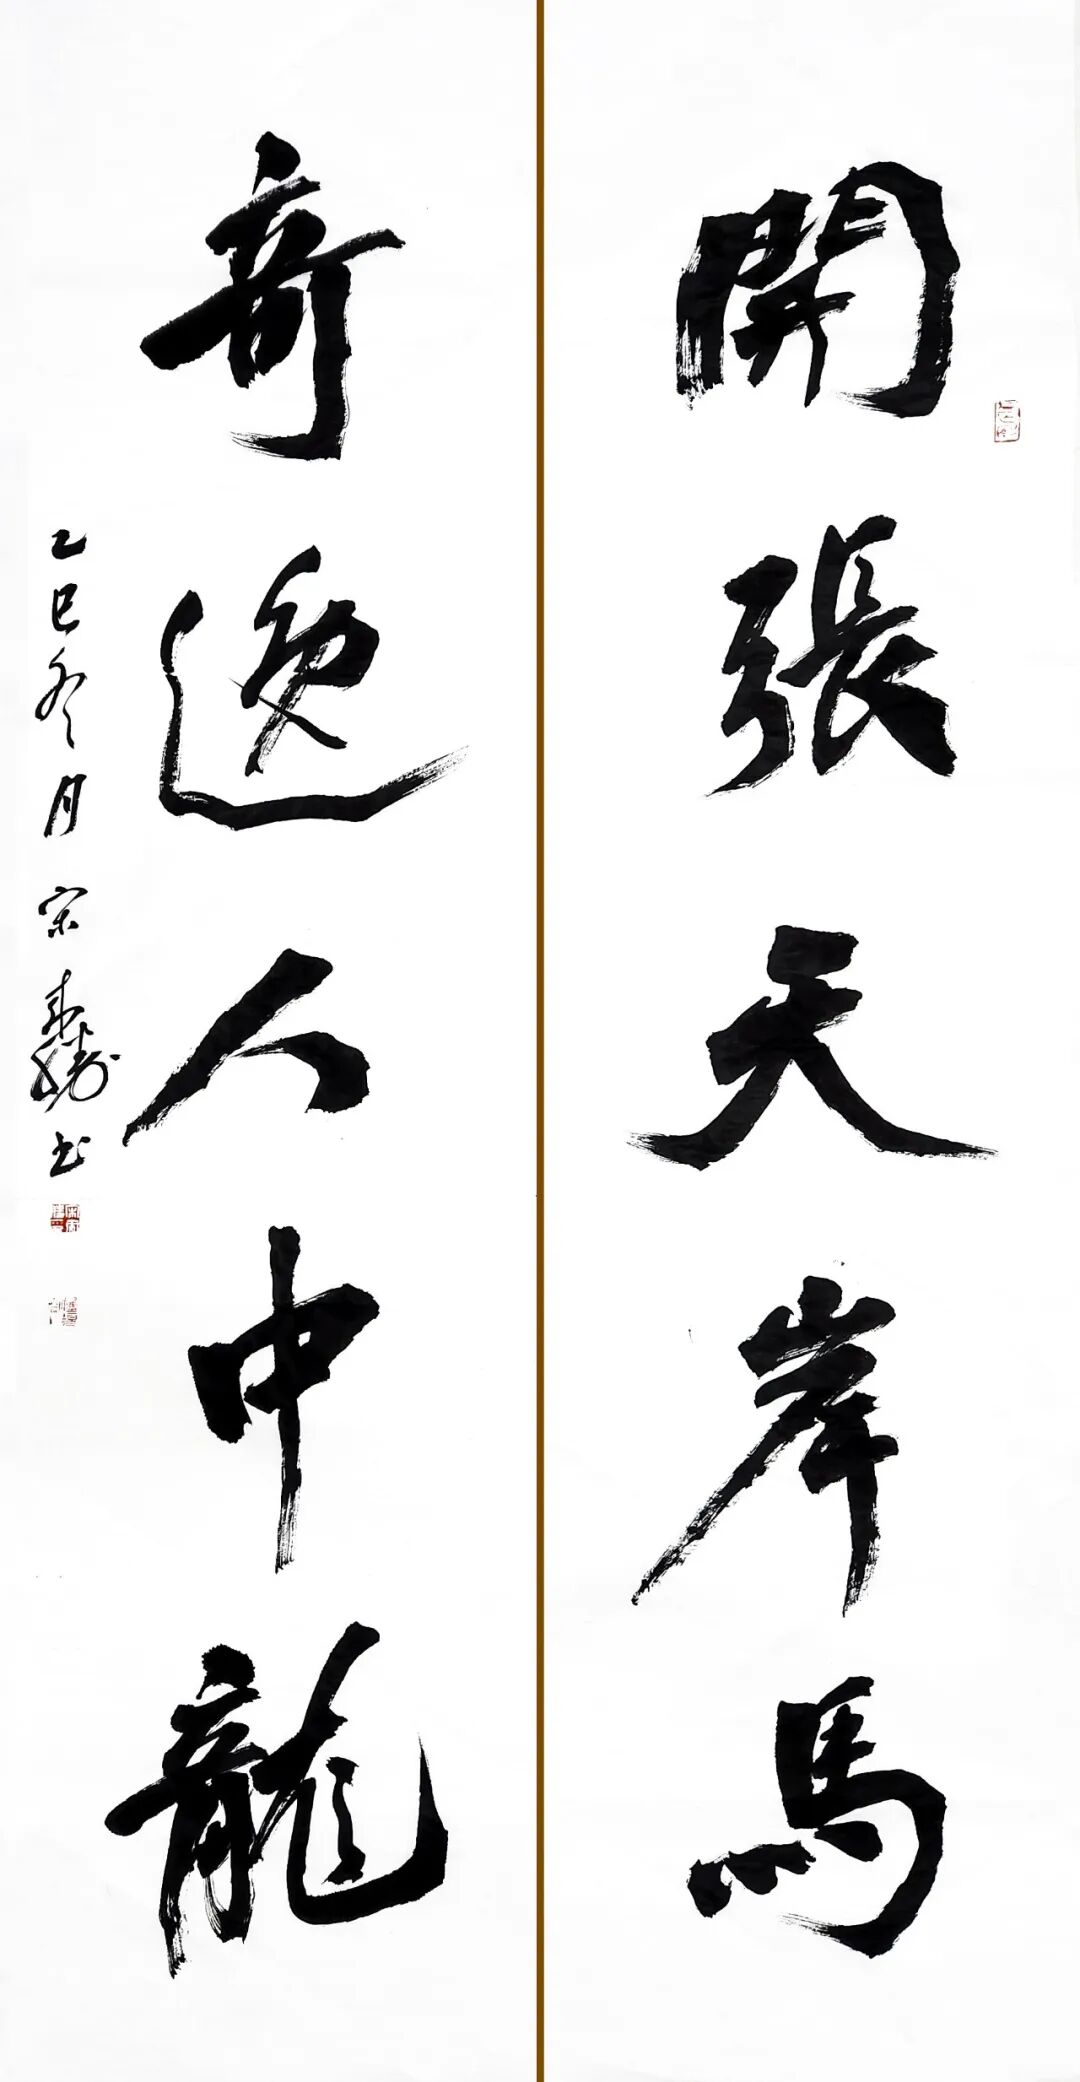 開張天岸馬
奇逸人中龍
乙巳冬月 宋 書